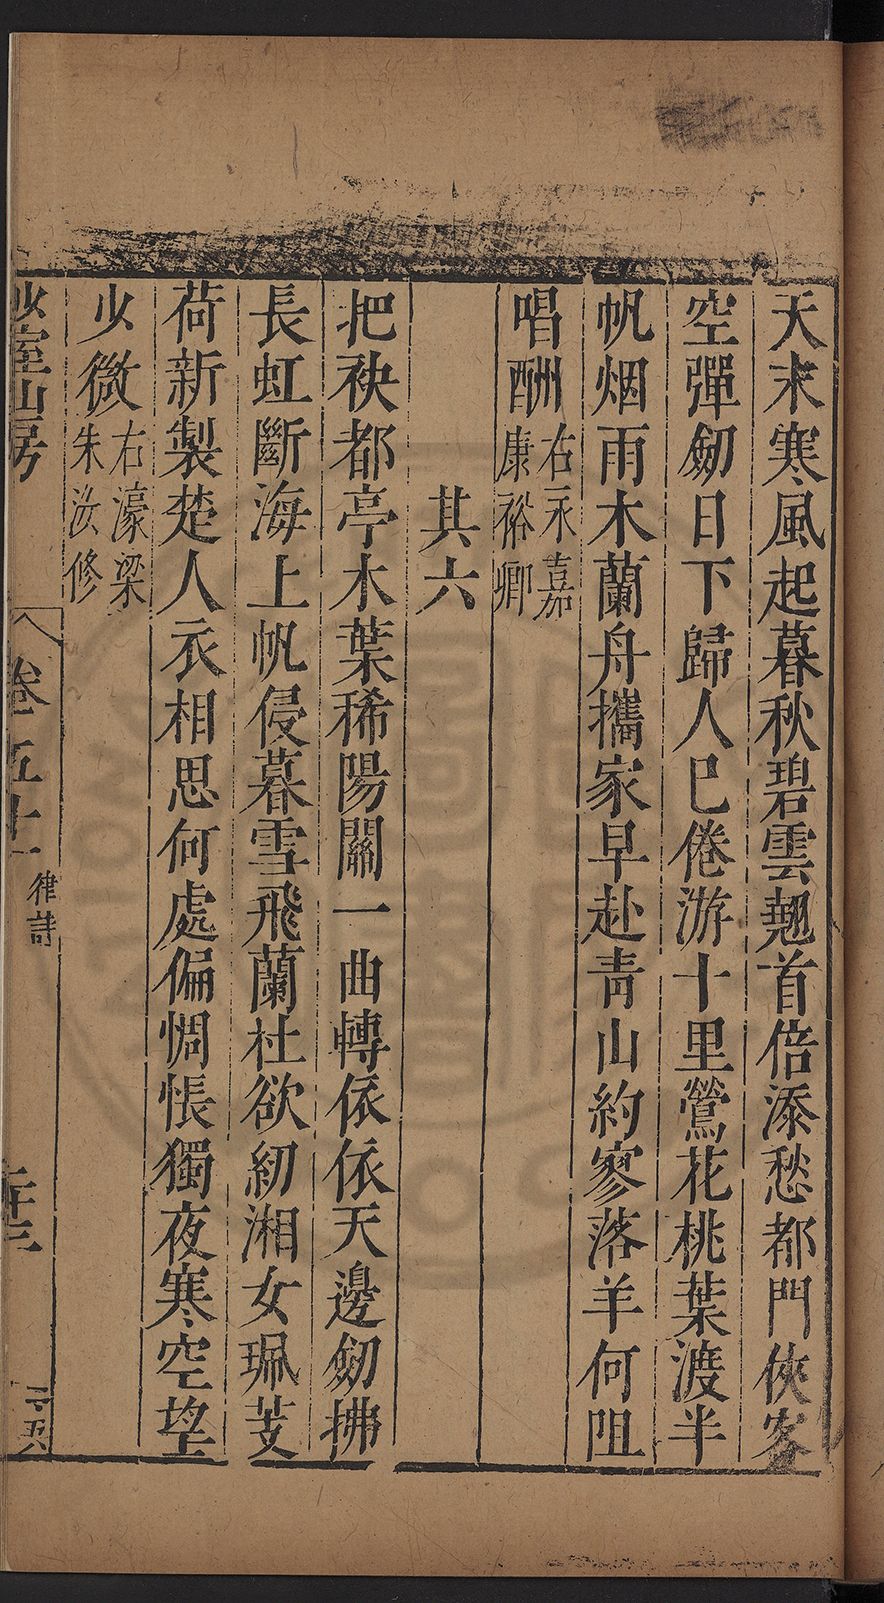 天末寒風起暮秋碧雲翹首倍添愁都門俠客
空彈劒日下歸人已倦游十里鶯花桃葉渡半
帆烟雨木蘭舟攜家早赴靑山約寥落羊何阻
唱酬右永嘉康裕卿
其六
把袂都亭木葉稀陽關一曲轉依依天邊劒拂
長虹斷海上帆侵暮雪飛蘭杜欲紉湘女珮芰
荷新製楚人衣相思何處偏惆悵獨夜寒空望
少微右濠梁朱汝修
少室山房
卷五十
律詩